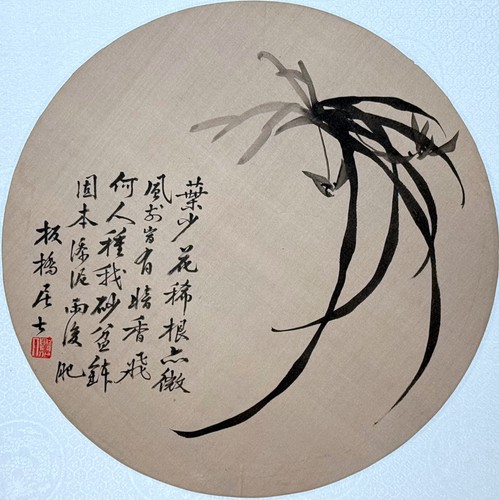 葉少花稀根亦微
風前有暗香飛
何人種我砂盆缽
固本添泥雨後肥
板橋居士